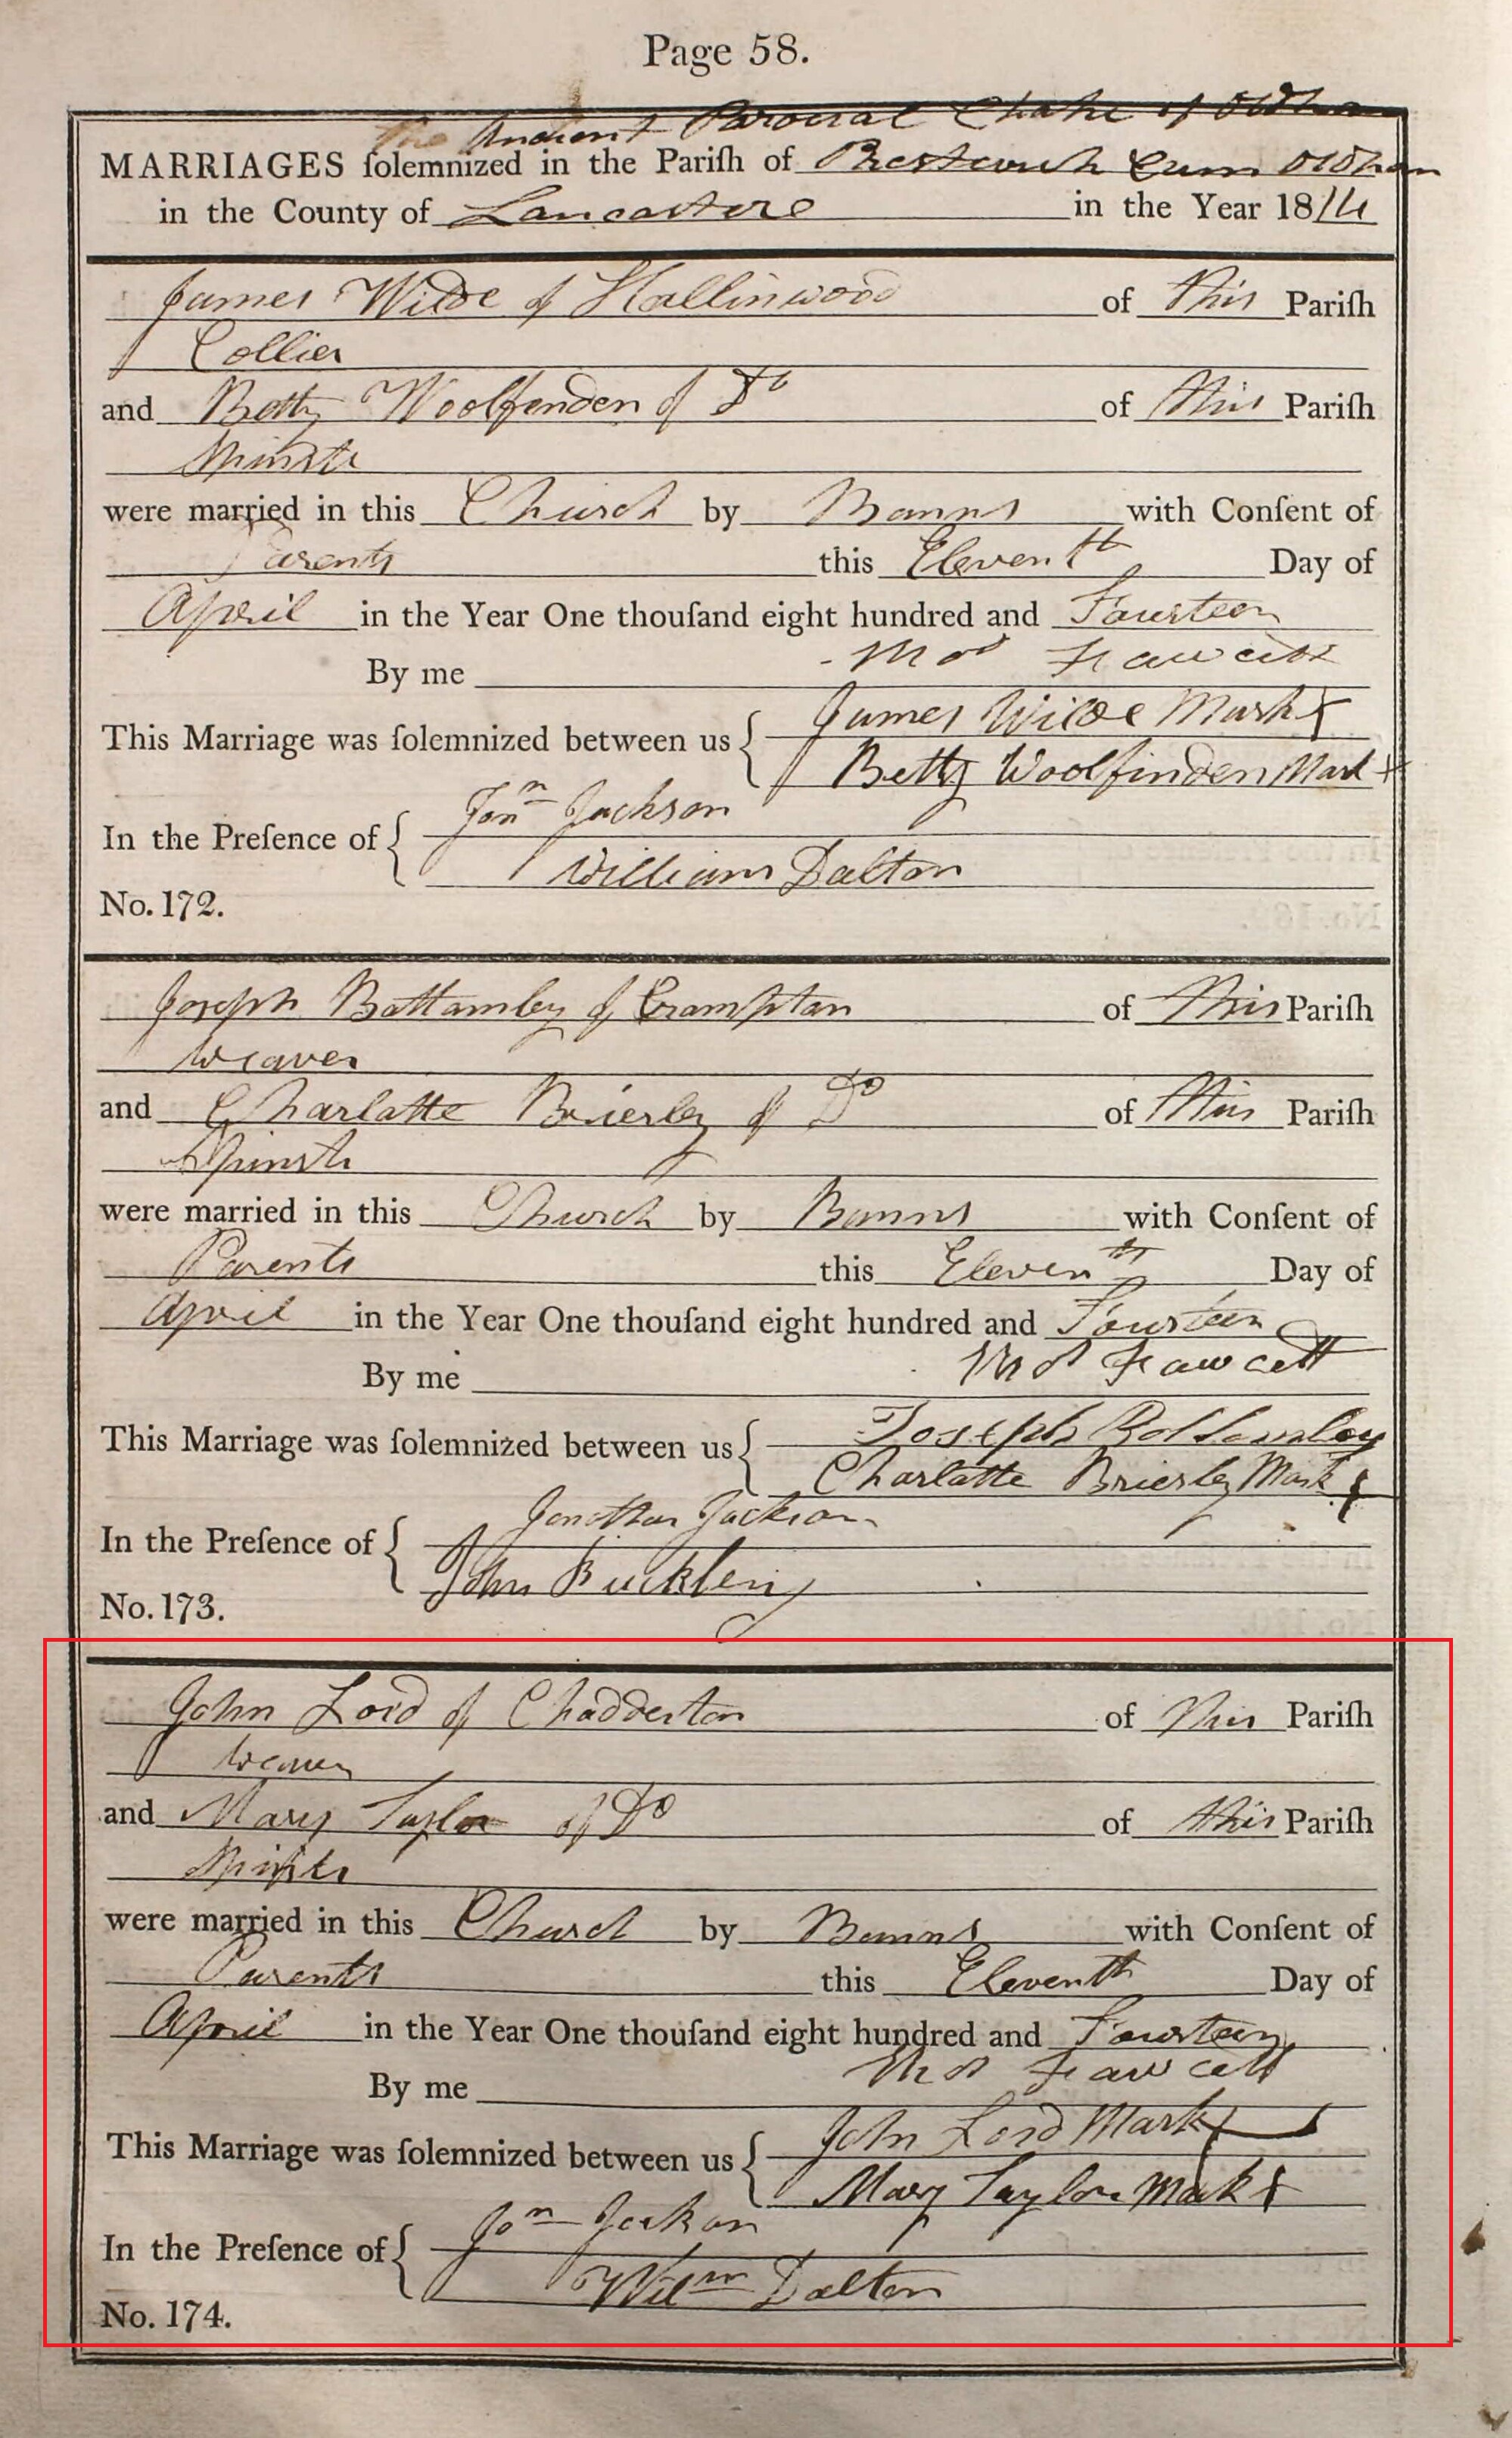 Page 58.
The Ancient Parocial Chapel of Oldham
MARRIAGES ſolemnized in the Pariſh of Prestwich Cum Oldham
in the County of Lancashire in the Year 1814
James Wilde of Hallinwood of this Pariſh
Collier
and Betty Woolfenden of Do of this Pariſh
Spinstr
were married in this Church by Banns with Conſent of
Parents this Eleventh Day of
April in the Year One thouſand eight hundred and Fourteen
By me Thos Fawcett
James Wilde Mark X
This Marriage was ſolemnized between us {
Betty Woolfinden Mark +
Jonn Jackson
In the Preſence of {
William Dalton
No. 172.
Joseph Bottamley of Crompton of this Pariſh
Weaver
and Charlatte Brierley of Do of this Pariſh
Spinstr
were married in this Church by Banns with Conſent of
Parents this Eleventh Day of
April in the Year One thouſand eight hundred and Fourteen
By me Thos Fawcett
Joseph Bottomley
This Marriage was ſolemnized between us {
Charlatte Brierley Mark X
Jonathan Jackson
In the Preſence of {
John Buckley
No. 173.
John Lord of Chadderton of this Pariſh
Weaver
and Mary Taylor of Do of this Pariſh
Spinstr
were married in this Church by Banns with Conſent of
Parents this Eleventh Day of
April in the Year One thouſand eight hundred and Fourteen
By me Thos Fawcett
John Lord Mark X
This Marriage was ſolemnized between us {
Mary Taylor Mark X
Jonn Jackson
In the Preſence of {
Willm Dalton
No. 174.